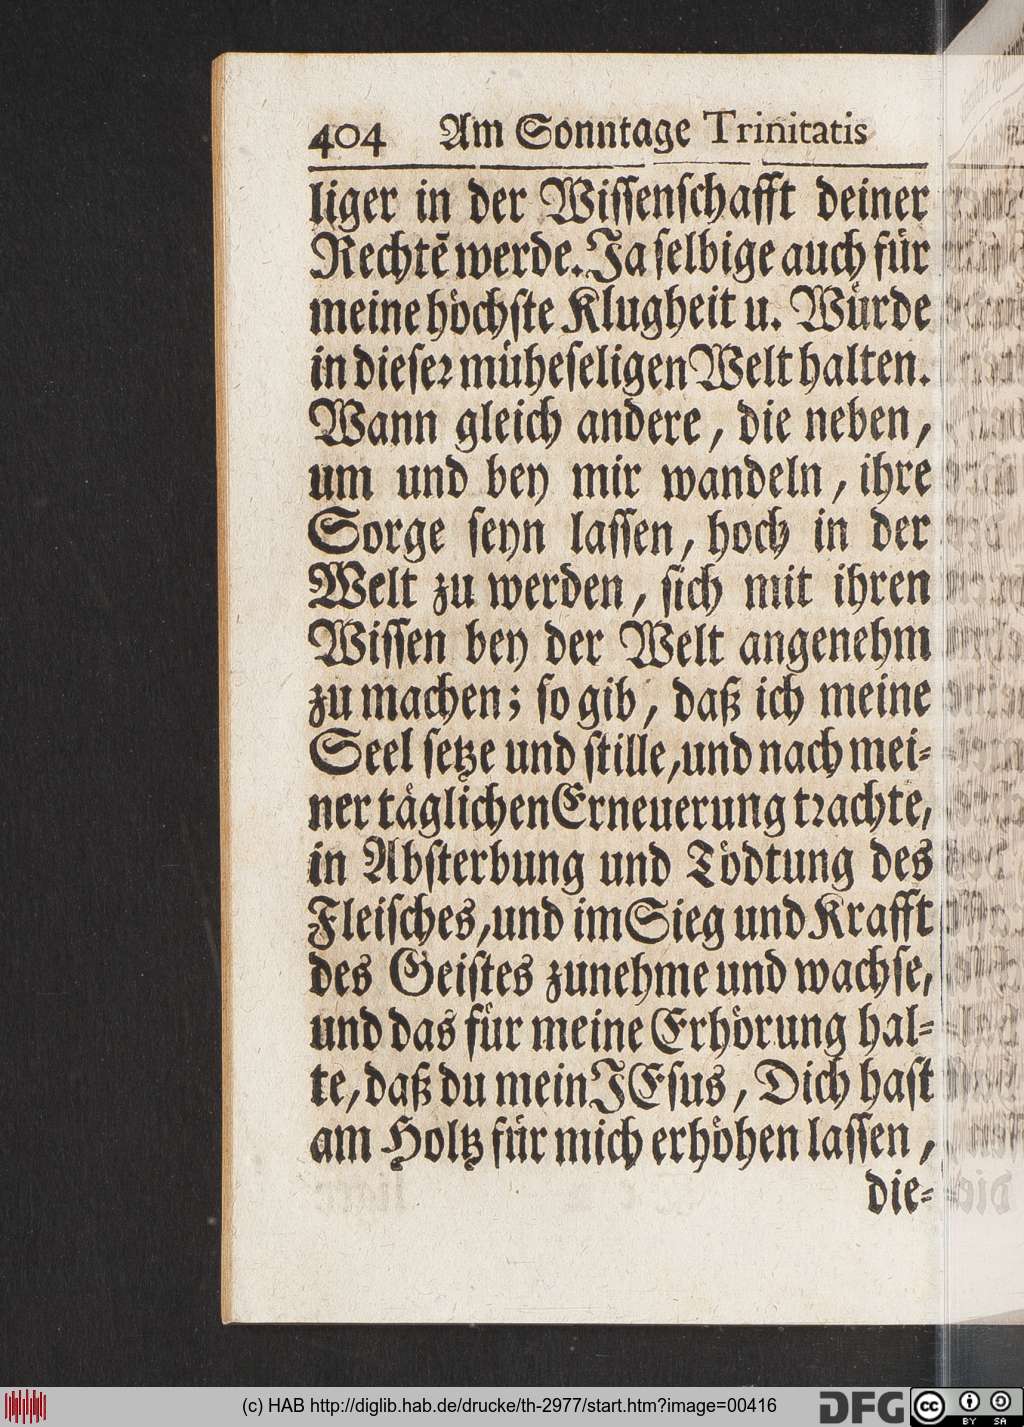 404 Am Sonntage Trinitatis
liger in der Wiſſenſchafft deiner
Rechtē werde. Ja ſelbige auch fuͤr
meine hoͤchſte Klugheit u. Wuͤrde
in dieſeꝛ muͤheſeligen Welt halten.
Wann gleich andere, die neben,
um und bey mir wandeln, ihre
Sorge ſeyn laſſen, hoch in der
Welt zu werden, ſich mit ihren
Wiſſen bey der Welt angenehm
zu machen; ſo gib, daß ich meine
Seel ſetze und ſtille, und nach mei⸗
ner taͤglichen Erneuerung tꝛachte,
in Abſterbung und Toͤdtung des
Fleiſches, und im Sieg und Krafft
des Geiſtes zunehme und wachſe,
und das fuͤr meine Erhoͤrung hal⸗
te, daß du mein JEſus, Dich haſt
am Holtz fuͤr mich erhoͤhen laſſen,
die⸗
(c) HAB http://diglib.hab.de/drucke/th-2977/start.htm?image=00416
DFG
cc BY SA